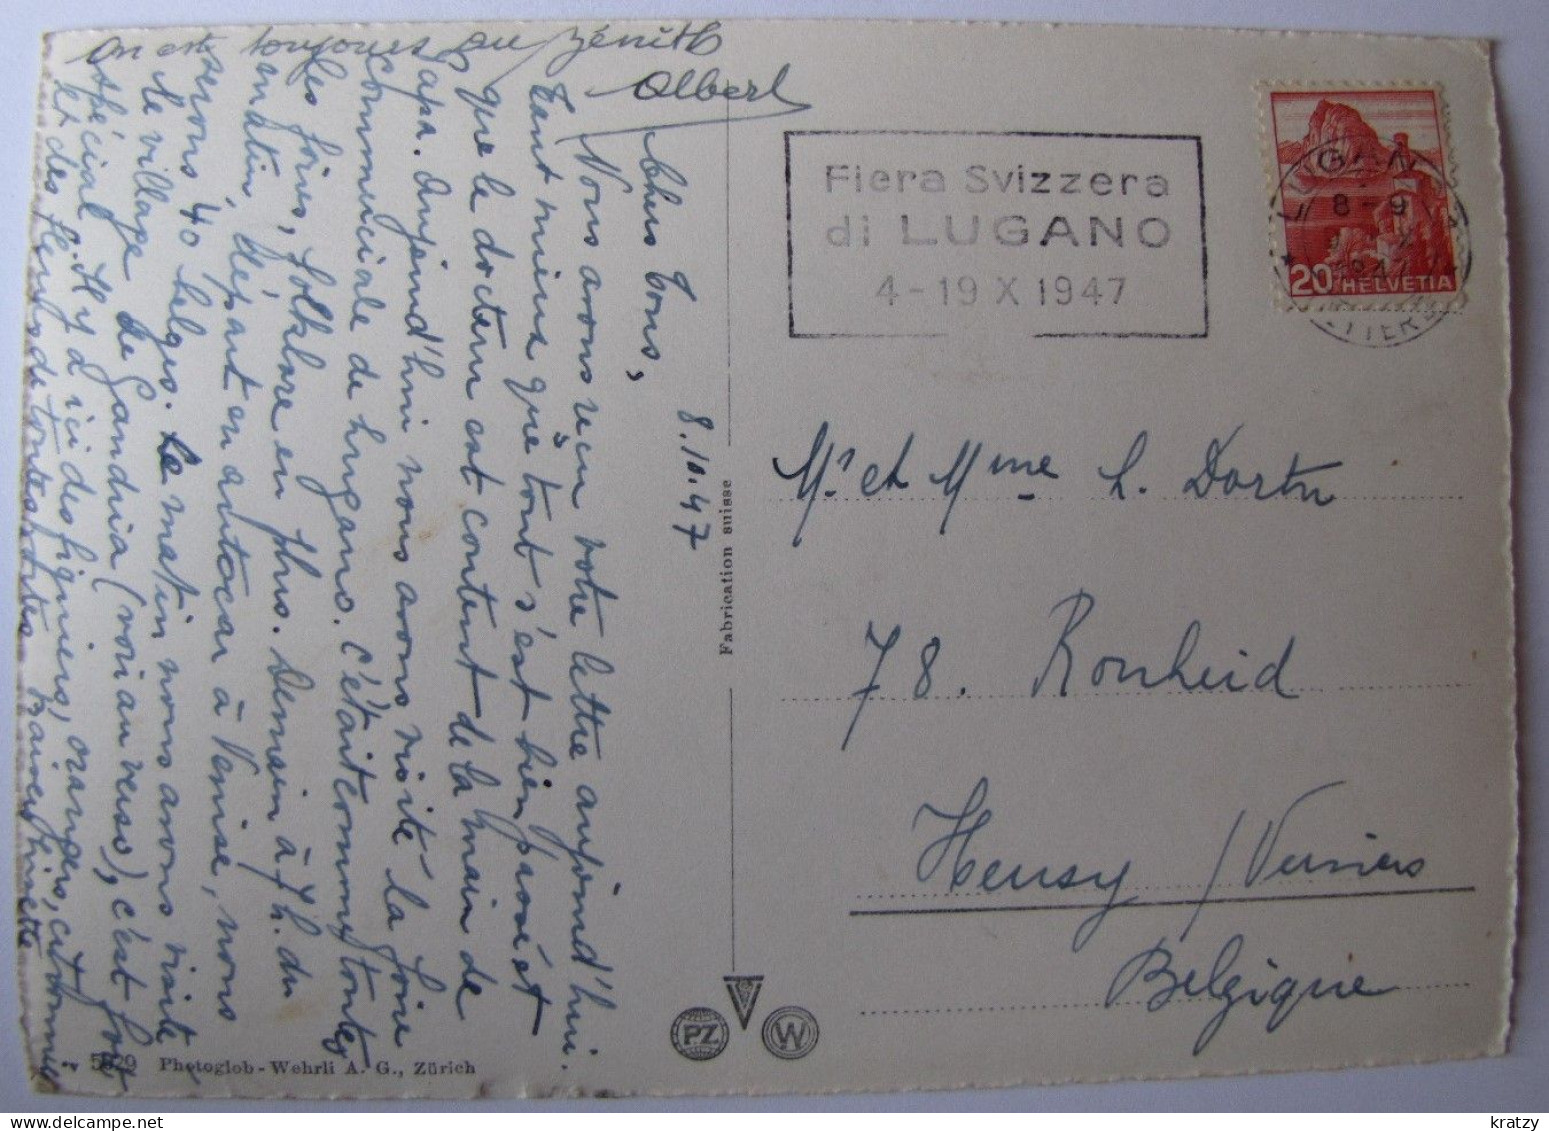 On est toujours au zénith
Albert
8.10.47
Chers tous,
Nous avons reçu votre lettre aujourd'hui.
Tant mieux que tout s'est bien passé et
que le docteur est content de la main de
Papa. Aujourd'hui nous avons visité la foire
commerciale de Lugano. C'était comme toutes
les foires, folklore en plus. Demain à 7 h. du
matin, départ en autocar à Venise, nous
serons 40 belges. Le matin nous avons visité
le village de Gandria (voir au verso), c'est fort
spécial. Il y a ici des figuiers, orangers, citronniers
et des fleurs de toutes sortes.
Fabrication suisse
5829 Photoglob-Wehrli A. G., Zürich
PZ
W
Fiera Svizzera
di LUGANO
4-19 X 1947
LUGANO
8-9
LETTERE
20 HELVETIA
Mr et Mme L. Dortu
78. Ronheid
Heusy / Verviers
Belgique
kratzy